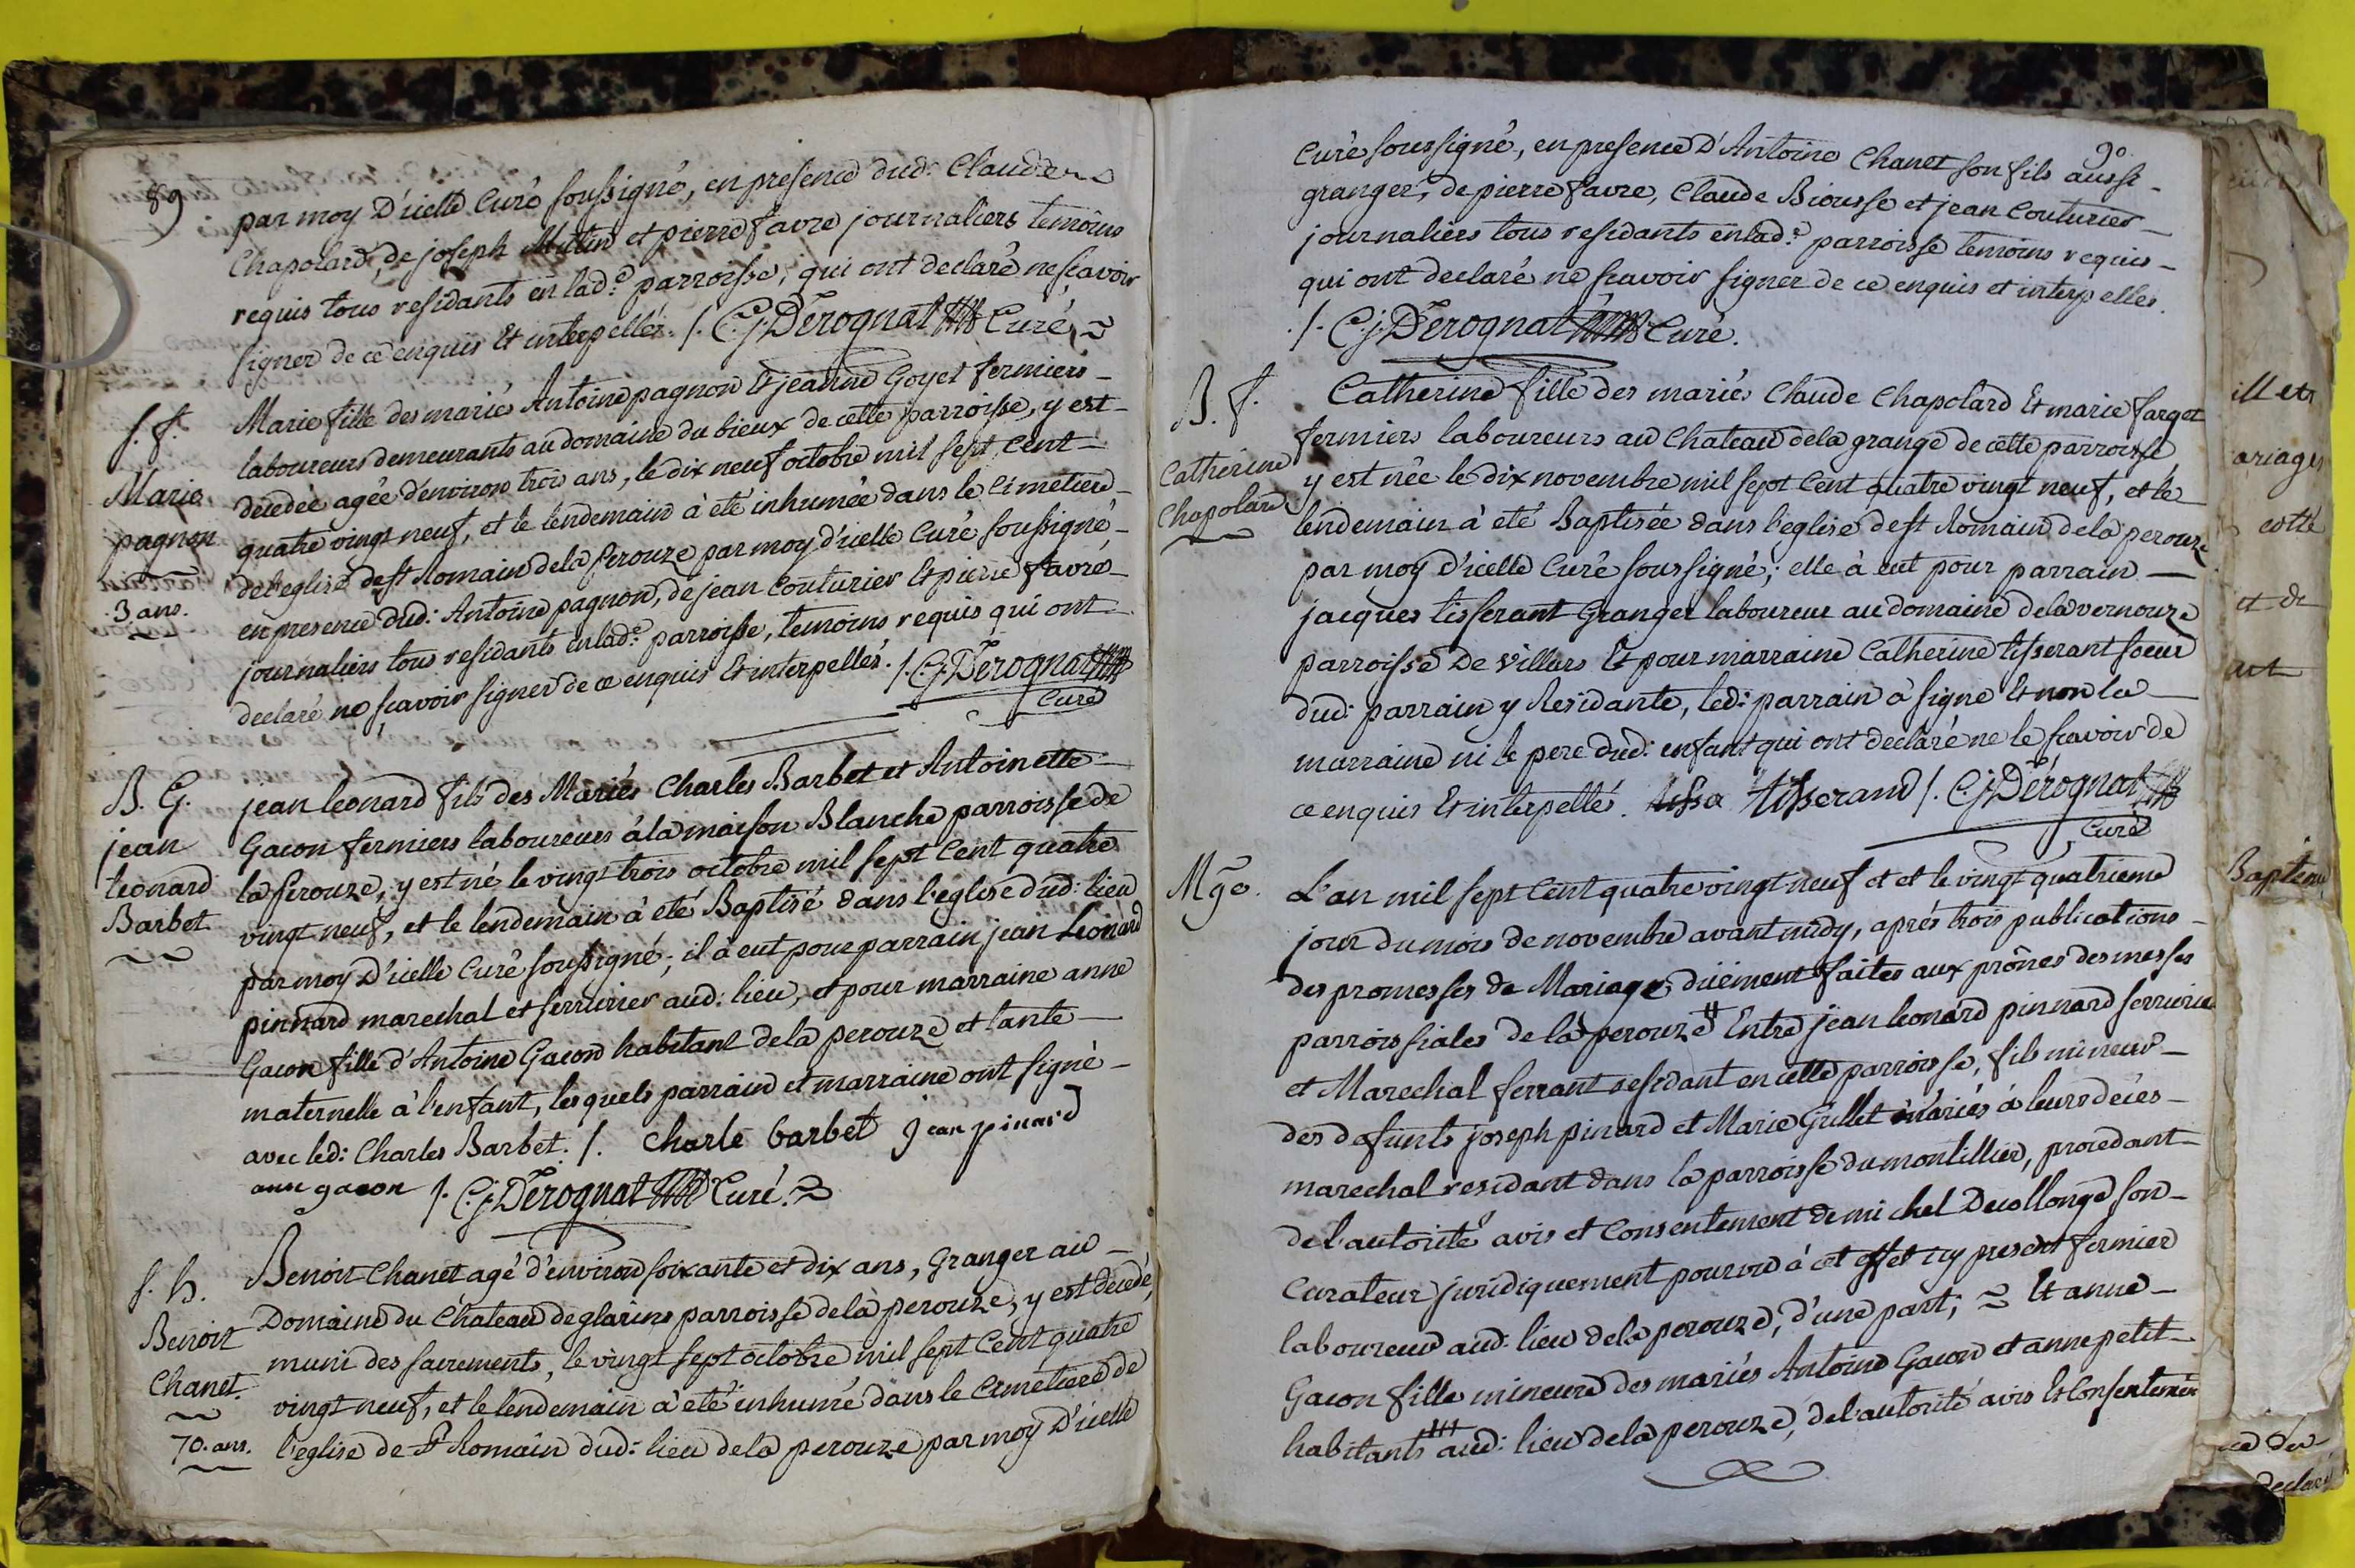 89
par moy D'icelle Curé soussigné, en presence dud: Claude
Chapolard, de joseph Mutin et pierre favre journaliers temoins
requis tous residants en lad.e parroisse, qui ont declaré ne scavoir
signer de ce enquis Et interpellés. /. C. j. Dérognat Curé
S. f.
Marie
pagnon
3 ans.
Marie fille des mariés Antoine pagnon Et jeanne Goyet fermiers
laboureurs demeurants au domaine du bieux de cette parroisse, y est
decedée agée d'environ trois ans, le dix neuf octobre mil sept cent
quatre vingt neuf, et le lendemain à eté inhumée dans le Cimetiere
de l'eglise de st Romain de la Perouze par moy d'icelle Curé soussigné,
en presence dud: Antoine pagnon, de jean Couturier Et pierre favre
journaliers tous residants en lad.e parroisse, temoins requis qui ont
declaré ne scavoir signer de ce enquis Et interpellés. /. C. j. Dérognat
Curé
B. G.
jean
leonard
Barbet
jean leonard fils des Mariés Charles Barbet et Antoinette
Gacon fermiers laboureurs à la maison Blanche parroisse de
la Perouze, y est né le vingt trois octobre mil sept Cent quatre
vingt neuf, et le lendemain à eté Baptisé dans l'eglise dud: lieu
par moy D'icelle Curé soussigné; il à eut pour parrain jean Leonard
pinnard marechal et serrurier aud: lieu, et pour marraine anne
Gacon fille d'Antoine Gacon habitant de la perouze et tante
maternelle à l'enfant, lesquels parrain et marraine ont signé
avec led: Charles Barbet. /. Charle barbet jean pinard
anne gacon /. C. j. Dérognat Curé.
S. h.
Benoit
Chanet
70. ans.
Benoit Chanet agé d'environ soixante et dix ans, Granger au
Domaine du Chateau de glarins parroisse de la perouze, y est decedé,
muni des sacrements, le vingt sept octobre mil sept Cent quatre
vingt neuf, et le lendemain à eté inhumé dans le Cimetiere de
l'eglise de St Romain dud: lieu de la perouze par moy D'icelle
90
Curé soussigné, en presence D'Antoine Chanet son fils aussi
granger, de pierre favre, Claude Biousse et jean Couturier
journaliers tous residants en lad.e parroisse temoins requis
qui ont declaré ne scavoir signer de ce enquis et interpellés.
./. C. j. Dérognat Curé.
B. f.
Catherine
Chapolard
Catherine fille des mariés Claude Chapolard Et marie farget
fermiers laboureurs au Chateau de la grange de cette parroisse
y est née le dix novembre mil sept Cent quatre vingt neuf, et le
lendemain à eté Baptisée dans l'eglise de st Romain de la perouze
par moy D'icelle Curé soussigné; elle à eut pour parrain
jacques tisserant Granger laboureur au domaine de la vernouze
parroisse De Villars Et pour marraine Catherine tisserant soeur
dud: parrain y Residante, led: parrain à signé Et non la
marraine ni le pere dud: enfant qui ont declaré ne le scavoir de
ce enquis Et interpellé. tissa tisserand /. C. j. Dérognat
Curé
Mge.
L'an mil sept Cent quatre vingt neuf et et le vingt quatrieme
jour du mois de novembre avant midy, aprés trois publications
des promesses de Mariage, düement faites aux prônes des messes
parroissiales de la perouze # Entre jean leonard pinnard serrurier
et Marechal ferrant residant en cette parroisse, fils mineur
des defunts joseph pinard et Marie Gillet mariés à leurs decés
marechal residant dans la parroisse du montillier, procedant
de l'autorité avis et Consentement de michel Decollonge son
Curateur juridiquement pourvu à cet effet icy present fermier
laboureur aud: lieu de la perouze, d'une part; Et anne
Gacon fille mineure des mariés Antoine Gacon et anne petit
habitants aud: lieu de la perouze, de l'autorité avis Et Consentement
illets
ariages
cotté
et de
Baptem
declaré